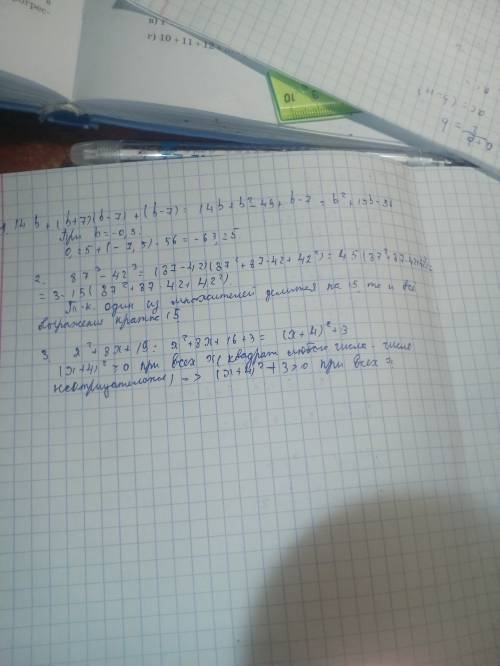 г) 10 + 11 + 12 +
10
14b + (b+7)(b-7) + (b-7) = 14b + b² - 49 + b - 7 = b² + 15b - 56
При b = -0,5
0,25 + (-7,5) - 56 = -63,25
2. 87³ - 42³ = (87-42)(87²+87·42+42²) = 45(87²+87·42+42²)
= 3·15(87²+87·42+42²)
Т.к. один из множителей делится на 15, то и всё
выражение кратно 15
3. x²+8x+19 = x²+8x+16+3 = (x+4)²+3
(x+4)² ≥ 0 при всех x (квадрат любого числа - число
неотрицательное) => (x+4)²+3>0 при всех x